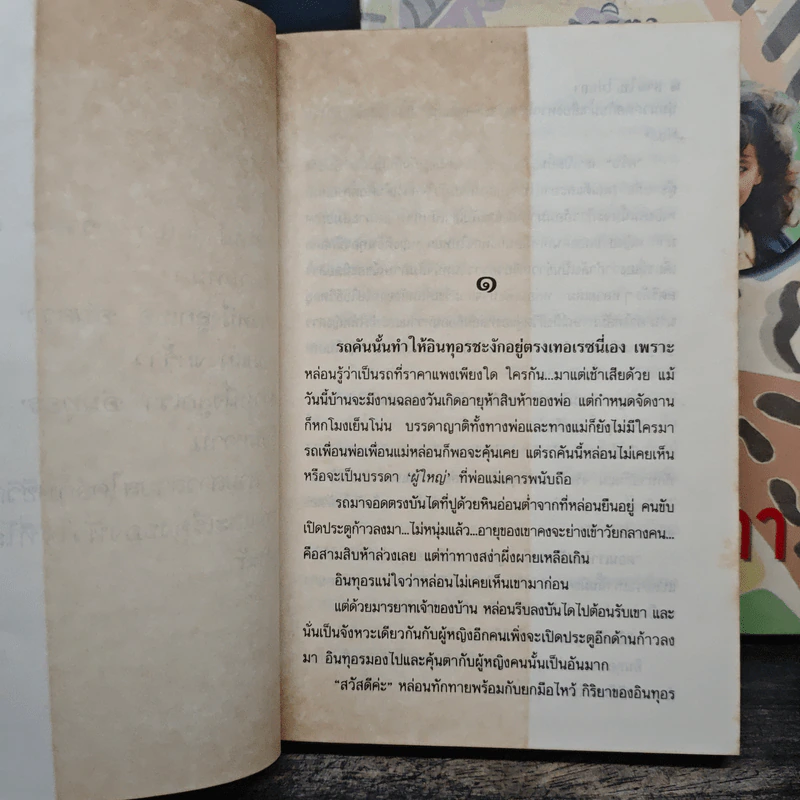 ๑
รถคันนั้นทำให้อินทุอรชะงักอยู่ตรงเทอเรซนี่เอง เพราะ
หล่อนรู้ว่าเป็นรถที่ราคาแพงเพียงใด ใครกัน...มาแต่เช้าเสียด้วย แม้
วันนี้บ้านจะมีงานฉลองวันเกิดอายุห้าสิบห้าของพ่อ แต่กำหนดจัดงาน
ก็หกโมงเย็นโน่น บรรดาญาติทั้งทางพ่อและทางแม่ก็ยังไม่มีใครมา
รถเพื่อนพ่อเพื่อนแม่หล่อนก็พอจะคุ้นเคย แต่รถคันนี้หล่อนไม่เคยเห็น
หรือจะเป็นบรรดา ‘ผู้ใหญ่’ ที่พ่อแม่เคารพนับถือ
รถมาจอดตรงบันไดที่ปูด้วยหินอ่อนต่ำจากที่หล่อนยืนอยู่ คนขับ
เปิดประตูก้าวลงมา...ไม่หนุ่มแล้ว...อายุของเขาคงจะย่างเข้าวัยกลางคน...
คือสามสิบห้าล่วงเลย แต่ท่าทางสง่าผึ่งผายเหลือเกิน
อินทุอรแน่ใจว่าหล่อนไม่เคยเห็นเขามาก่อน
แต่ด้วยมารยาทเจ้าของบ้าน หล่อนรีบลงบันไดไปต้อนรับเขา และ
นั่นเป็นจังหวะเดียวกันกับผู้หญิงอีกคนเพิ่งจะเปิดประตูอีกด้านก้าวลง
มา อินทุอรมองไปและคุ้นตากับผู้หญิงคนนั้นเป็นอันมาก
“สวัสดีค่ะ” หล่อนทักทายพร้อมกับยกมือไหว้ กิริยาของอินทุอร